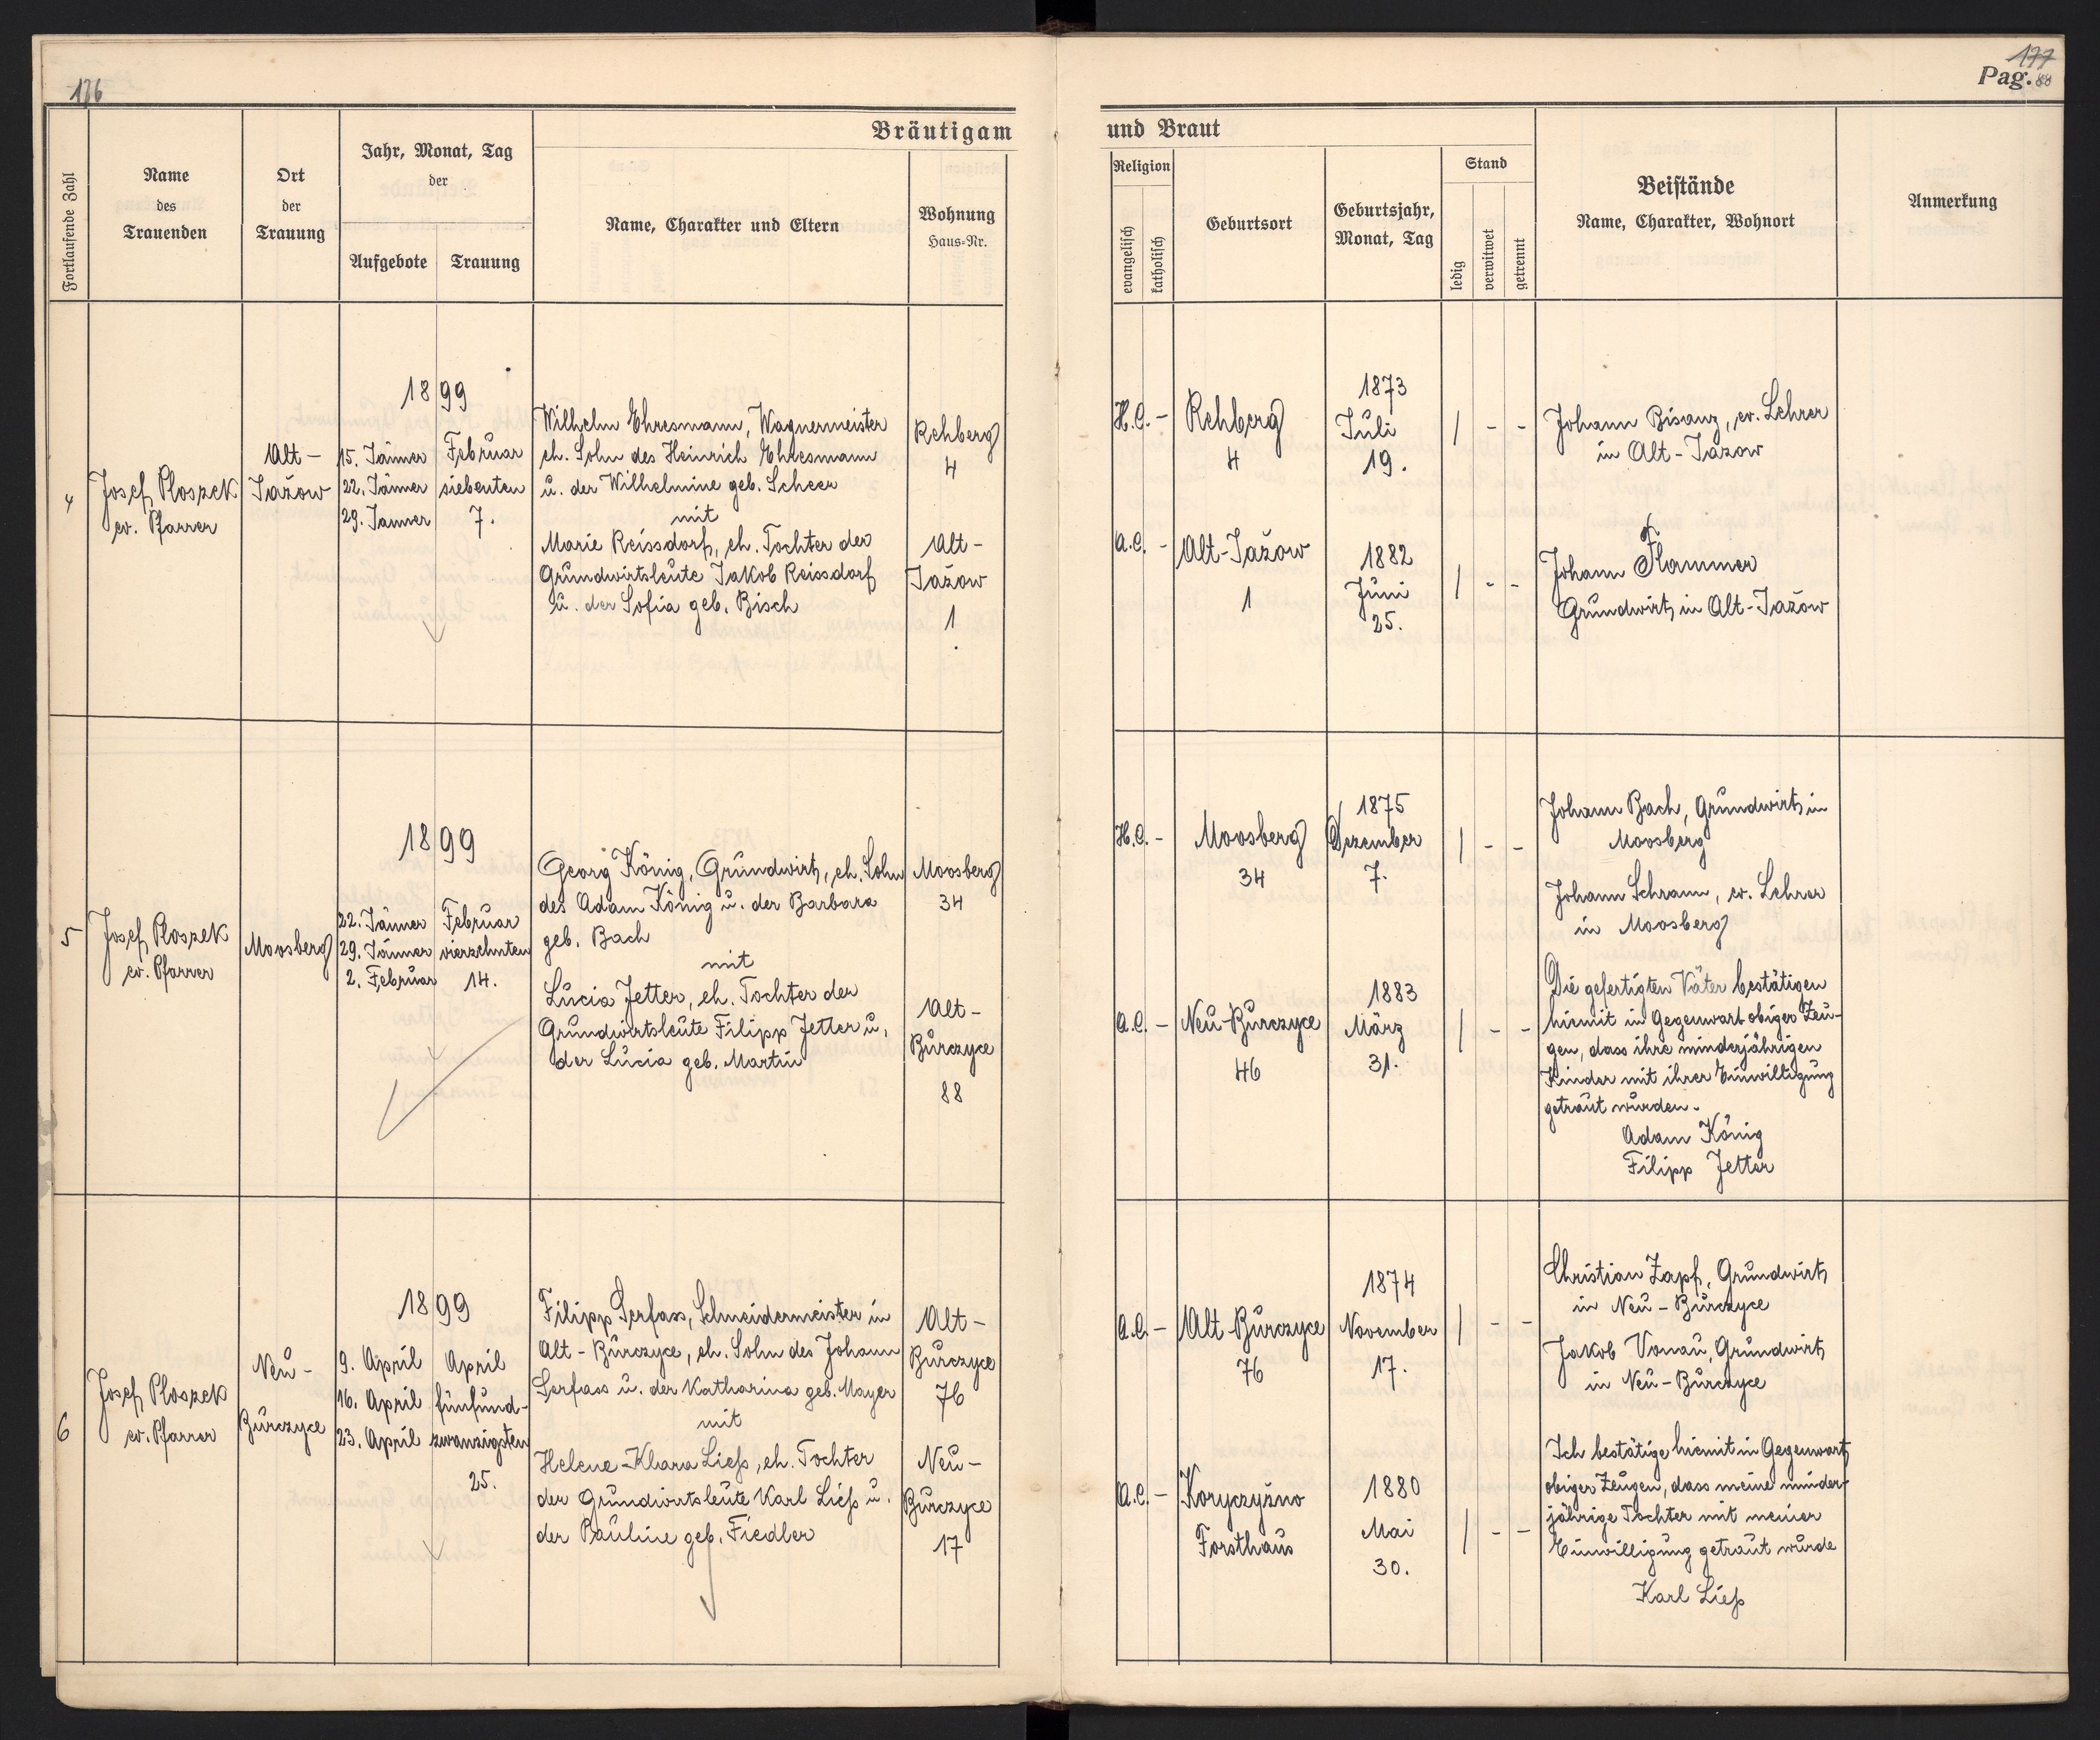 176
177
Pag. 88
Bräutigam
und Braut
Fortlaufende Zahl
Name
des
Trauenden
Ort
der
Trauung
Jahr, Monat, Tag
der
Aufgebote
Trauung
Name, Charakter und Eltern
Wohnung
Haus-Nr.
Religion
evangelisch
katholisch
Geburtsort
Geburtsjahr,
Monat, Tag
Stand
ledig
verwitwet
getrennt
Beistände
Name, Charakter, Wohnort
Anmerkung
4
Josef Ploszek
ev. Pfarrer
Alt-
Jažow
1899
15. Jänner
22. Jänner
29. Jänner
Februar
siebenten
7.
Wilhelm Ehresmann, Wagnermeister
eh. Sohn des Heinrich Ehresmann
u. der Wilhelmine geb. Scheer
mit
Marie Reissdorf, eh. Tochter der
Grundwirtsleute Jakob Reissdorf
u. der Sofia geb. Bisch
Rehberg
4
Alt-
Jažow
1
H.C. -
Rehberg
4
1873
Juli
19.
/ - -
A.C. -
Alt-Jažow
1
1882
Juni
25.
/ - -
Johann Bisanz, ev. Lehrer
in Alt-Jazow
Johann Flammer
Grundwirt in Alt-Jažow
5
Josef Ploszek
ev. Pfarrer
Moosberg
1899
22. Jänner
29. Jänner
2. Februar
Februar
vierzehnten
14.
Georg König, Grundwirt, eh. Sohn
des Adam König u. der Barbara
geb. Bach
mit
Lucia Jetter, eh. Tochter der
Grundwirtsleute Filipp Jetter u.
der Lucia geb. Martin
Moosberg
34
Alt-
Burczyce
88
H.C. -
Moosberg
34
1875
Dezember
7.
/ - -
A.C. -
Neu-Burczyce
46
1883
März
31.
/ - -
Johann Bach, Grundwirt in
Moosberg
Johann Schram, ev. Lehrer
in Moosberg
Die gefertigten Väter bestätigen
hiemit in Gegenwart obiger Zeu-
gen, dass ihre minderjährigen
Kinder mit ihrer Einwilligung
getraut wurden.
Adam König
Filipp Jetter
6
Josef Ploszek
ev. Pfarrer
Neu-
Burczyce
1899
9. April
16. April
23. April
April
fünfund-
zwanzigsten
25.
Filipp Serfass, Schneidermeister in
Alt-Burczyce, eh. Sohn des Johann
Serfass u. der Katharina geb. Mayer
mit
Helene-Klara Ließ, eh. Tochter
der Grundwirtsleute Karl Ließ u.
der Pauline geb. Fiedler
Alt-
Burczyce
76
Neu-
Burczyce
17
A.C. -
Alt-Burczyce
76
1874
November
17.
/ - -
A.C. -
Koryczyžno
Forsthaus
1880
Mai
30.
/ - -
Christian Zapf, Grundwirt
in Neu-Burczyce
Jakob Vonau, Grundwirt
in Neu-Burczyce
Ich bestätige hiemit in Gegenwart
obiger Zeugen, dass meine minder-
jährige Tochter mit meiner
Einwilligung getraut wurde
Karl Ließ